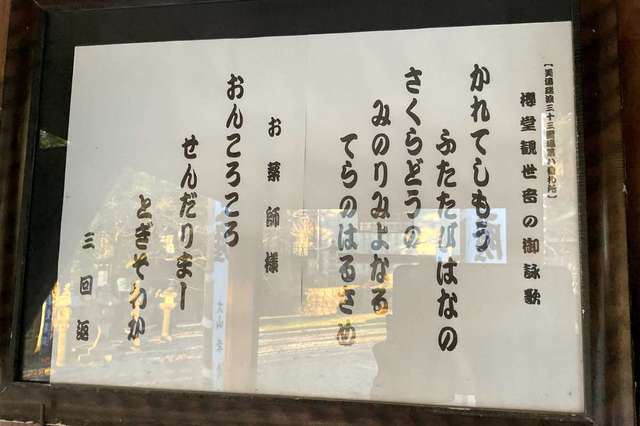 【美濃瑞浪三十三霊場第八番札所】
桜堂観世音の御詠歌
かれてしもう
ふたたびはなの
さくらどうの
みのりみよなる
てらのはるさめ
お薬師様
おんころころ
せんだりまー
とぎそわか
三回返